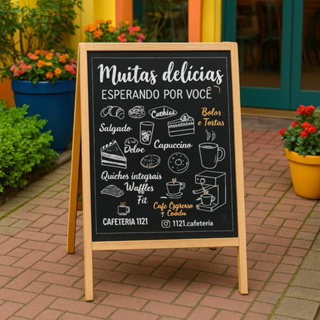 Muitas delícias
ESPERANDO POR VOCÊ
Cookies
Bolos
e Tortas
Salgado
Delve
Capuccino
Quiches integrais
Waffles
Fit
Cafe Csgresso
+ Coadu
CAFETERIA 1121
1121.cafeteria